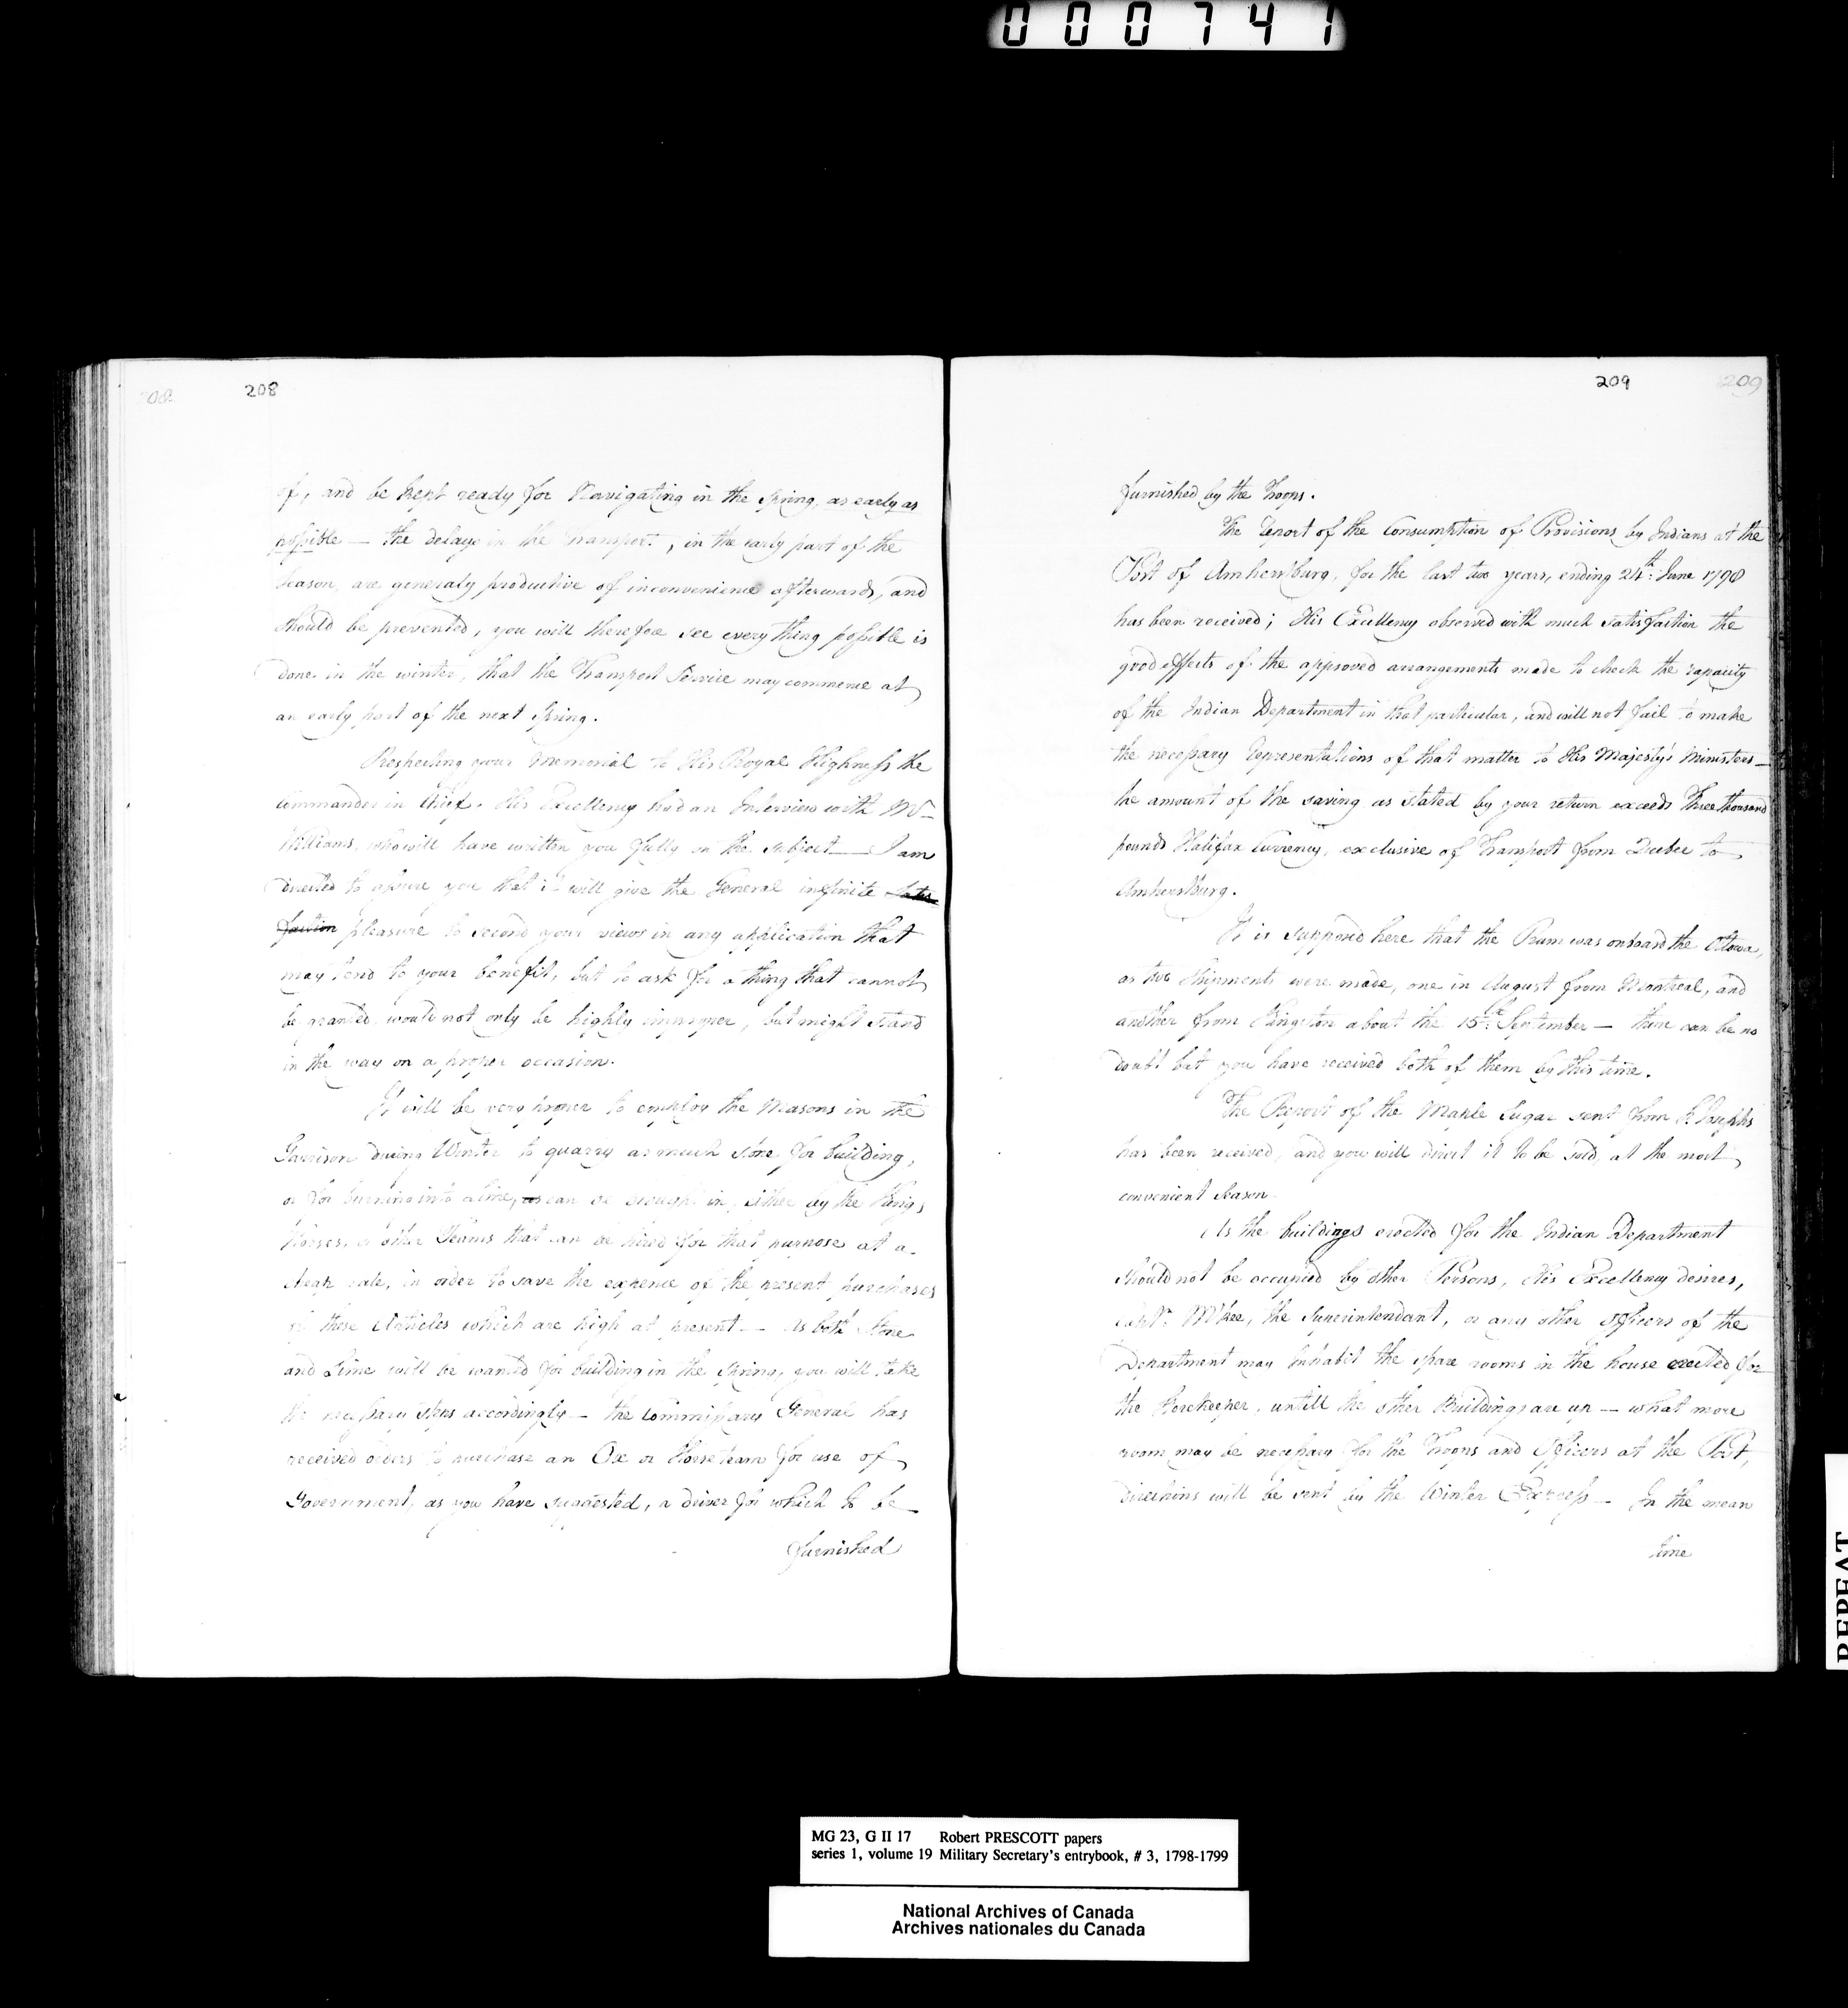 000741
208
208
of, and be kept ready for Navigating in the Spring, as early as
possible — the delays in the Transport, in the early part of the
Season, are generaly productive of inconvenience afterwards, and
should be prevented, you will therefore see every thing possible is
done in the winter, that the Transport Service may commence at
an early part of the next Spring.
Respecting your Memorial to His Royal Highness the
Commander in Chief. His Excellency had an Interview with Mr
Williams, who will have written you fully on the subject — I am
directed to assure you that it will give the General infinite satis
faction pleasure to second your views in any application that
may tend to your benefit, but to ask for a thing that cannot
be granted, would not only be highly improper, but might stand
in the way on a proper occasion.
It will be very proper to employ the Masons in the
Garrison during Winter to quarry as much stone for building,
or for burning into Lime, as can be brought in, either by the Kings
Horses, or other Teams that can be hired for that purpose at a
cheap rate, in order to save the expence of the present purchases
of these Articles which are high at present — As both Stone
and Lime will be wanted for building in the Spring, you will take
the necessary steps accordingly — the Commissary General has
received orders to purchase an Ox or Horse team for use of
Government, as you have suggested, a driver for which to be
furnished
209
209
furnished by the Troops.
The Report of the Consumption of Provisions by Indians at the
Post of Amherstburg, for the last two years, ending 24th June 1798
has been received; His Excellency observed with much satisfaction the
good effects of the approved arrangements made to check the rapacity
of the Indian Department in that particular, and will not fail to make
the necessary Representations of that matter to His Majesty's Ministers —
the amount of the saving as stated by your return exceeds Three thousand
pounds Halifax Currency, exclusive of Transport from Quebec to
Amherstburg.
It is supposed here that the Rum was onboard the Ottowa,
as two Shipments were made, one in August from Montreal, and
another from Kingston about the 15th September — there can be no
doubt but you have received both of them by this time.
The Report of the Maple Sugar sent from St. Josephs
has been received, and you will direct it to be sold, at the most
convenient Season
As the buildings erected for the Indian Department
should not be occupied by other Persons, His Excellency desires,
Captn. McKee, the Superintendant, or any other Officers of the
Department may Inhabit the spare rooms in the house erected for
the Storekeeper, untill the other Buildings are up — what more
room may be necessary for the Troops and Officers at the Post,
directions will be sent by the Winter Express — In the mean
time
REPEAT
MG 23, G II 17 Robert PRESCOTT papers
series 1, volume 19 Military Secretary's entrybook, # 3, 1798-1799
National Archives of Canada
Archives nationales du Canada